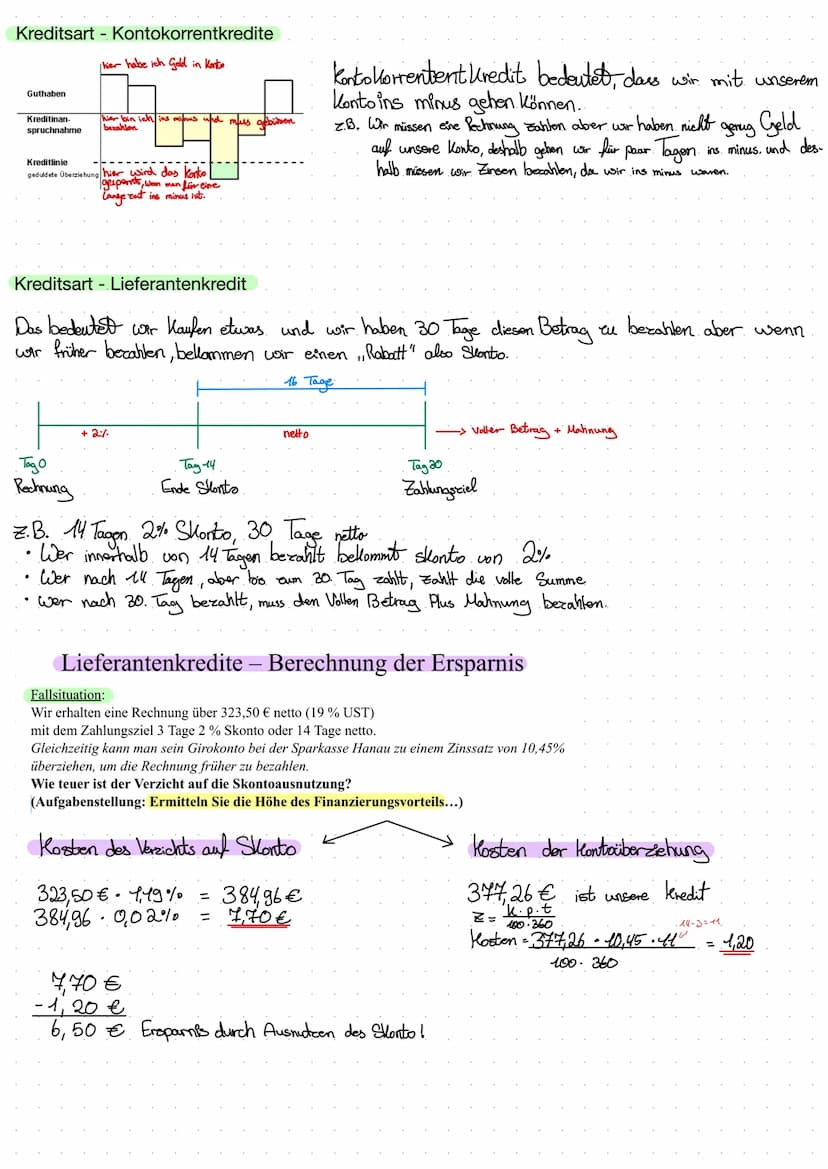 Kreditsart - Kontokorrentkredite
hier habe ich Geld in Konto
Guthaben
Kreditinan-
spruchnahme
hier bin ich ins minus und muss gebühren
bezahlen
Kreditlinie
geduldete Überziehung
hier wird das Konto
gesperrt, wenn man für eine
lange zeit ins minus ist.
Kontokorrentent Kredit bedeutet, dass wir mit unserem
Konto ins minus gehen können.
z.B. Wir müssen eine Rechnung zahlen aber wir haben nicht genug Geld
auf unsere Konto, deshalb gehen wir für paar Tagen ins minus und des-
halb müssen wir Zinsen bezahlen, da wir ins minus waren.
Kreditsart - Lieferantenkredit
Das bedeutet wir kaufen etwas und wir haben 30 Tage diesen Betrag zu bezahlen aber wenn
wir früher bezahlen, bekommen wir einen „Rabatt" also Skonto.
16 Tage
+ 2%
netto
→ Voller Betrag + Mahnung
Tag 0
Tag 14
Tag 30
Rechnung
Ende Skonto
Zahlungsziel
z.B. 14 Tagen 2% Skonto, 30 Tage netto
• Wer innerhalb von 14 Tagen bezahlt bekommt skonto von 2%
• Wer nach 14 Tagen, aber bis zum 30. Tag zahlt, zahlt die volle Summe
• Wer nach 30. Tag bezahlt, muss den Vollen Betrag Plus Mahnung bezahlen.
Lieferantenkredite – Berechnung der Ersparnis
Fallsituation:
Wir erhalten eine Rechnung über 323,50 € netto (19 % UST)
mit dem Zahlungsziel 3 Tage 2 % Skonto oder 14 Tage netto.
Gleichzeitig kann man sein Girokonto bei der Sparkasse Hanau zu einem Zinssatz von 10,45%
überziehen, um die Rechnung früher zu bezahlen.
Wie teuer ist der Verzicht auf die Skontoausnutzung?
(Aufgabenstellung: Ermitteln Sie die Höhe des Finanzierungsvorteils…)
Kosten des Verzichts auf Skonto
323,50 € · 1,19% = 384,96 €
384,96 · 0,02% = 7,70 €
7,70 €
- 1,20 €
6,50 € Ersparnis durch Ausnutzen des Skonto!
Kosten der Kontoüberziehung
377,26 € ist unsere Kredit
z = k·p·t
100·360
14-3=11
Kosten = 377,26 · 10,45 · 11 = 1,20
100 · 360